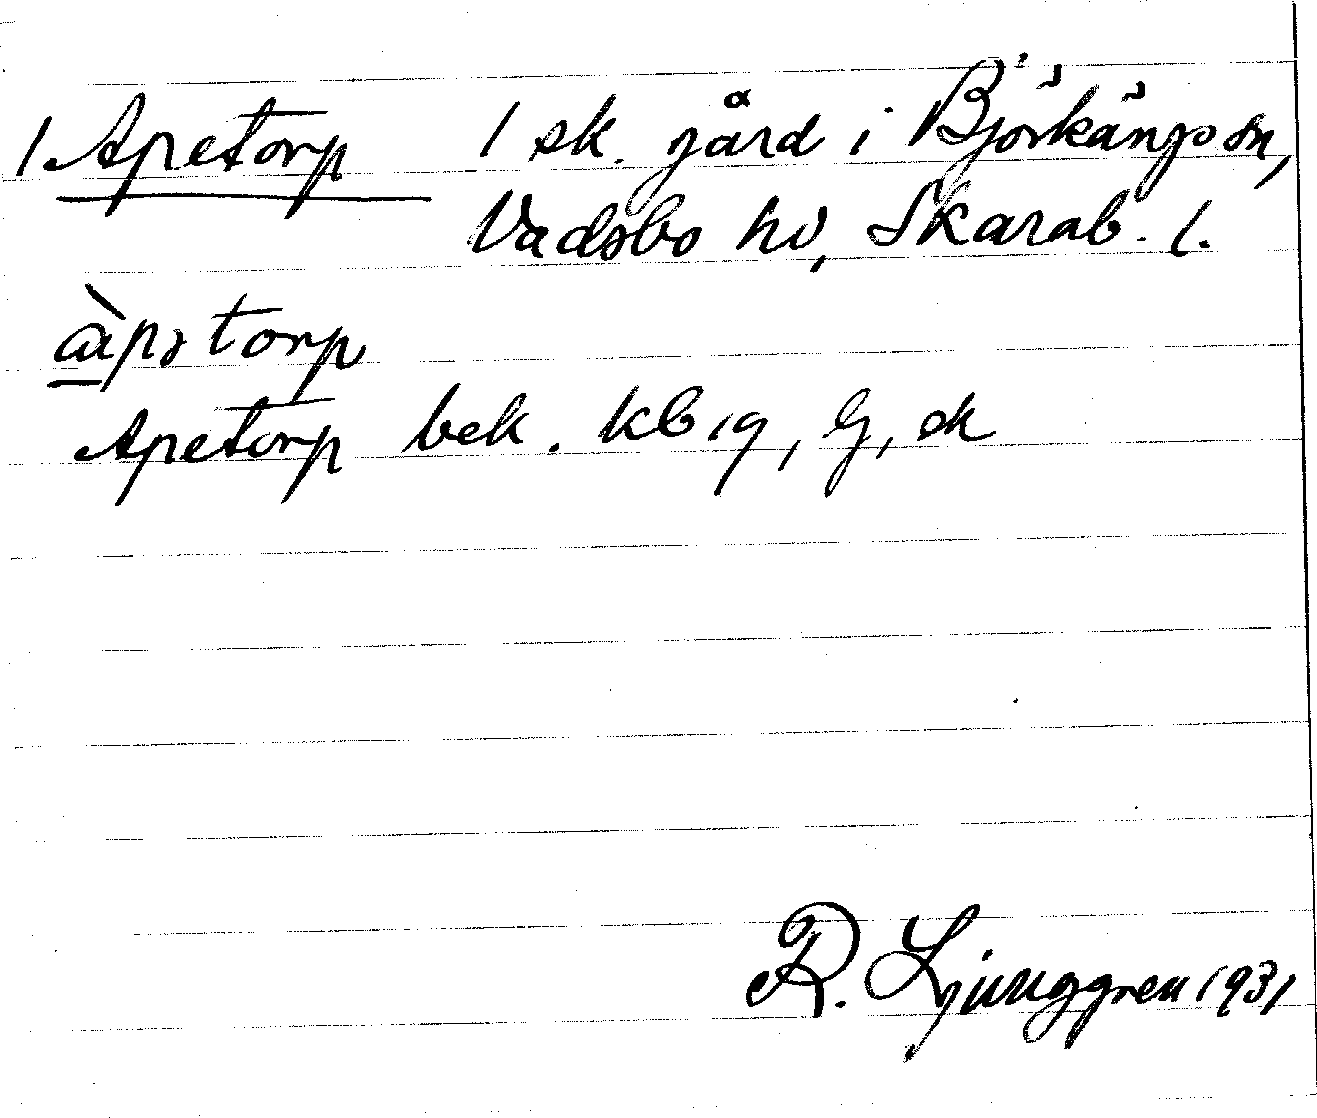 1 Apetorp 1 sk. gård i Björkängs sn,
Vadsbo hd, Skarab. l.
àpətorp
Apetorp bek. kb 19, lj, sk
R. Ljunggren 1931